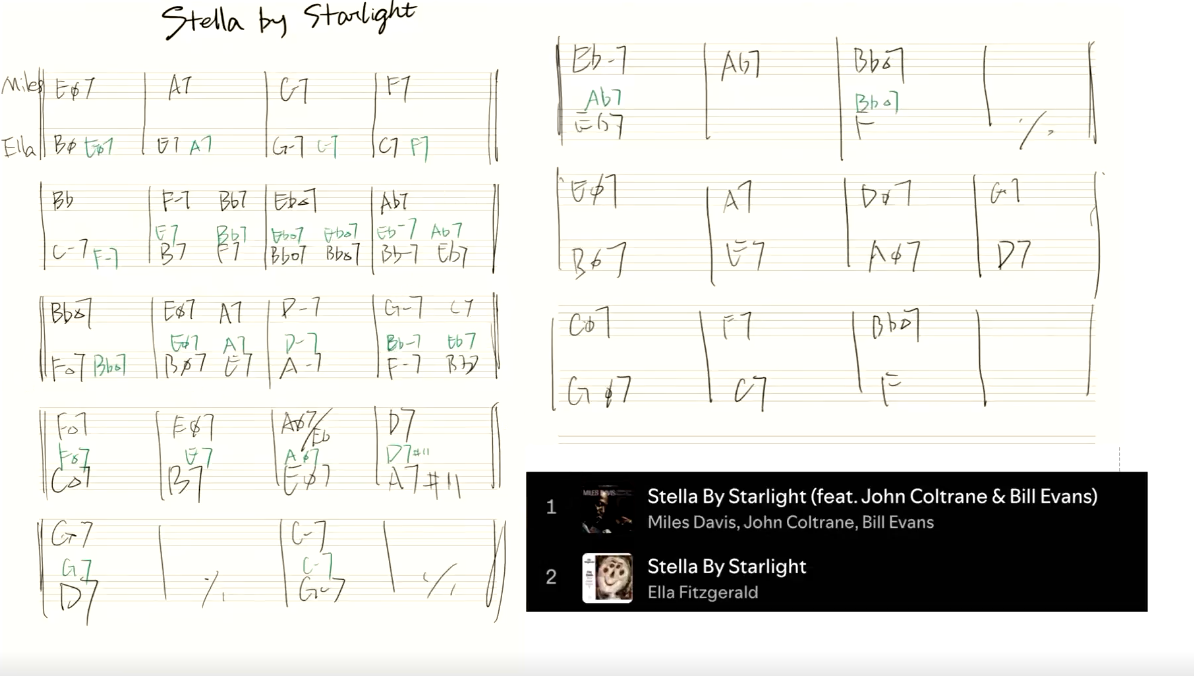 Stella by Starlight
Miles Eø7 A7 C-7 F7
Ella Bø Eø7 E7 A7 G-7 C-7 C7 F7
Bb F-7 Bb7 EbΔ7 Ab7
E7 Bb7 Ebo7 EbΔ7 Eb-7 Ab7
C-7 F-7 B7 F7 Bbo7 BbΔ7 Bb-7 Eb7
BbΔ7 Eø7 A7 D-7 G-7 C7
Eø7 A7 D-7 Bb-7 Eb7
FΔ7 BbΔ7 Bø7 E7 A-7 F-7 Bb7
FΔ7 Eø7 Aø7/Eb D7
FΔ7 E7 Aø7 D7#11
CΔ7 B7 Eø7 A7#11
G7 C-7
G7 C-7
D7 % G-7 %
Eb-7 Ab7 BbΔ7
Ab7 BbΔ7
Eb7 F %
Eø7 A7 Dø7 G7
Bø7 E7 Aø7 D7
Cø7 F7 BbΔ7
Gø7 C7 F
1 Stella By Starlight (feat. John Coltrane & Bill Evans)
Miles Davis, John Coltrane, Bill Evans
MILES DAVIS
2 Stella By Starlight
Ella Fitzgerald